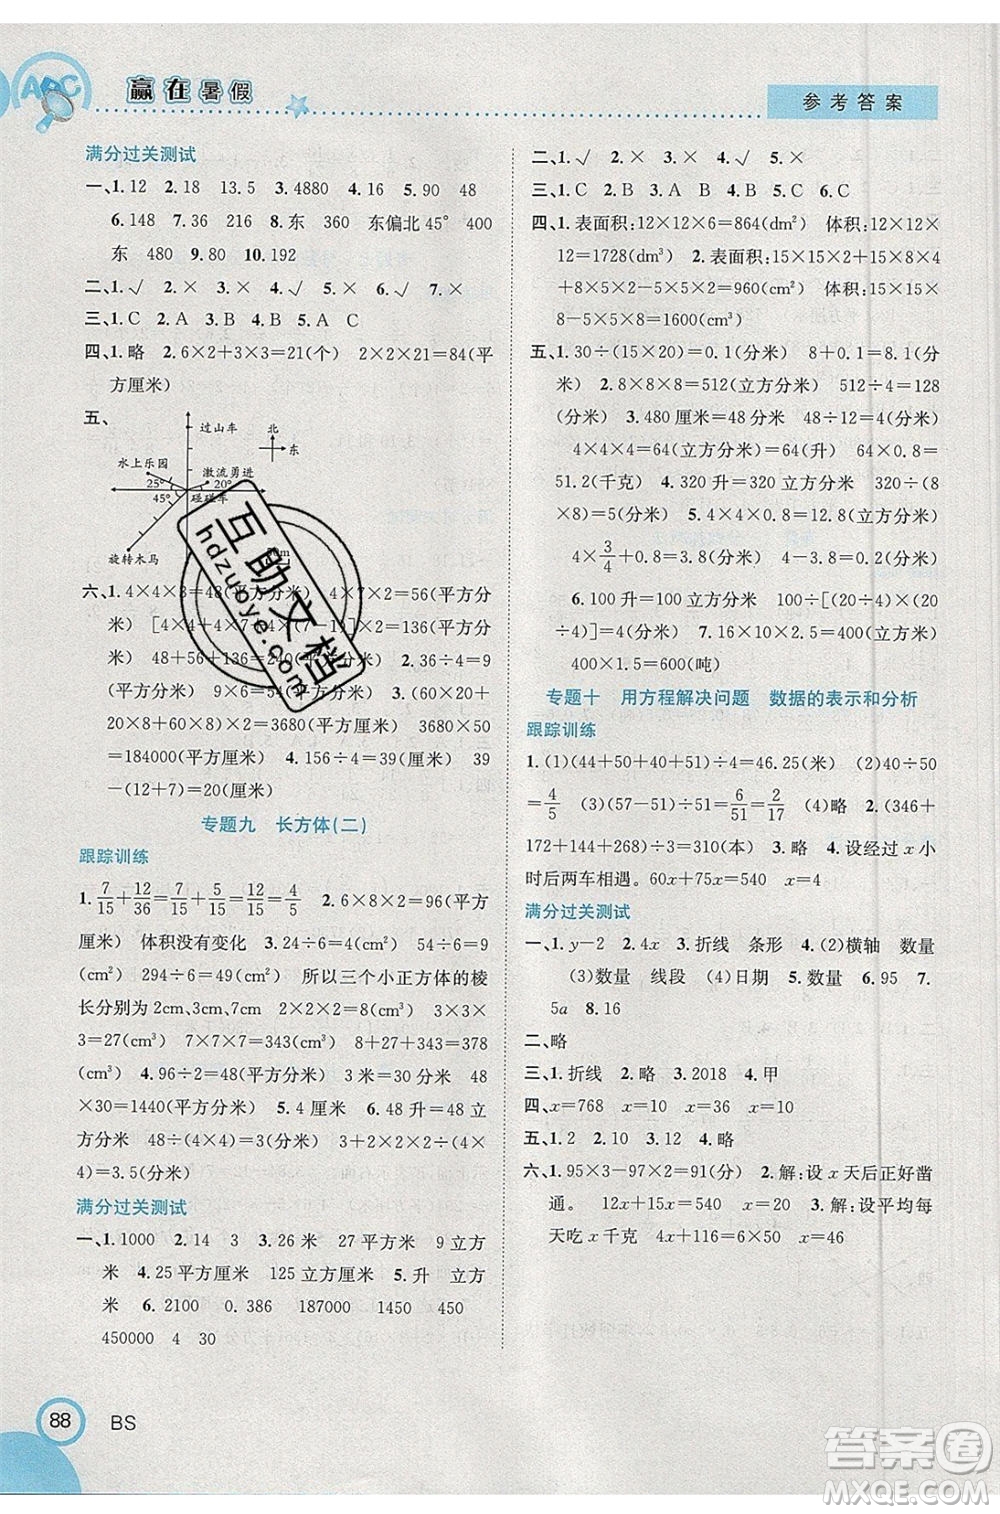 ABC
赢在暑假
参考答案
满分过关测试
一、1.12 2.18 13.5 3.4880 4.16 5.90 48
6.148 7.36 216 8.东 360 东偏北45° 400
东 240 9.80 10.192
二、1.√ 2.× 3.× 4.× 5.√ 6.√ 7.×
三、1.C 2.A 3.B 4.B 5.A C
四、1.略 2.6×2+3×3=21(个) 2×2×21=84(平
方厘米)
五、
过山车 北
东
水上乐园
激流勇进
25° 20°
45° 碰碰车
旋转木马
六、1.4×4×3=48(平方分米) 4×7×2=56(平方分
米) [4×4+4×7+4×(7-1)]×2=136(平方分
米) 48+56+136=240(平方分米) 2.36÷4=9
(平方分米) 9×6=54(平方分米) 3.(40×20+
20×26+40×26)×2=3680(平方分米) 3680×50
=184000(平方厘米) 4.156÷4=39(厘米) 39
-(12+7)=20(厘米)
专题九 长方体(二)
跟踪训练
1.7/15+12/36=7/15+5/15=12/15=4/5 2.6×8×2=96(平方
厘米) 体积没有变化 3.24÷6=4 54÷6=9
(cm²) 294÷6=49(cm²) 所以三个小正方体的棱
长分别为2cm、3cm、7cm 2×2×2=8(cm³) 3×3×
3=27(cm³) 7×7×7=343(cm³) 8+27+343=378
(cm³) 4.96÷2=48(平方分米) 3米=30分米 48
×30=1440(平方分米) 5.4厘米 6.48升=48立
方分米 48÷(4×4)=3(分米) 3×2+2÷(4×
4)=3.5(分米)
满分过关测试
一、1.1000 2.14 3 3.36米 27平方米 4.5立方
米 4.25平方厘米 125立方厘米 5.升 立方
米 6.2100 0.386 187000 1450 450
450000 4 30
二、1.√ 2.× 3.× 4.√ 5.×
三、1.C 2.A 3.B 4.C 5.C 6.C
四、1.表面积:12×12×6=864(dm²) 体积:12×12×
12=1728(dm³) 2.表面积:15×15×2+15×8×4
+8×5×2-5×8×2=960(cm²) 体积:15×15×
8-8×5×5=1600(cm³)
五、1.30÷(15×20)=0.1(分米) 8+0.1=8.1(
分米) 2.8×8×8=512(立方分米) 512÷4=128
(分米) 3.480厘米=48分米 48÷12=4(分米)
4×4×4=64(立方分米)=64(升) 64×0.8=
51.2(千克) 4.320升=320立方分米 320÷(8
×5)=8(分米) 5.4×4×0.8=12.8(立方分米)
4×3/4+0.8=3.8(分米) 4-3.8=0.2(分米)
6.100升=100立方分米 100÷[(20÷4)×(20
÷4)]=4(分米) 7.16×10×2.5=400(立方米)
400×1.5=600(吨)
专题十 用方程解决问题 数据的表示和分析
跟踪训练
1.(1)(44+50+40+51)÷4=46.25(米) (2)40÷50
=4/5 (3)(2)6÷51=6/51=2/17 (4)略 2.(346+
172+144+268)÷3=310(本) 3.略 4.设经过x小
时后两车相遇。60x+75x=540 x=4
满分过关测试
一、1.y-2 2.4x 3.折线 条形 4.(2)横轴 数量
(3)数量 线段 (4)日期 5.数量 6.95 7.
5a 8.16
二、略
三、1.折线 2.略 3.2018 4.甲
四、x=768 x=20 x=36 x=10
五、1.2 2.10 3.12 4.略
六、1.95×3-97×2=91(分) 2.解:设x天后正好凿
通。 12x+15x=540 x=20 3.解:设平均每
天吃x千克 4x+116=300 x=46
互助文档
hdzuoye.com
88 BS
答案圈
MXQE.COM